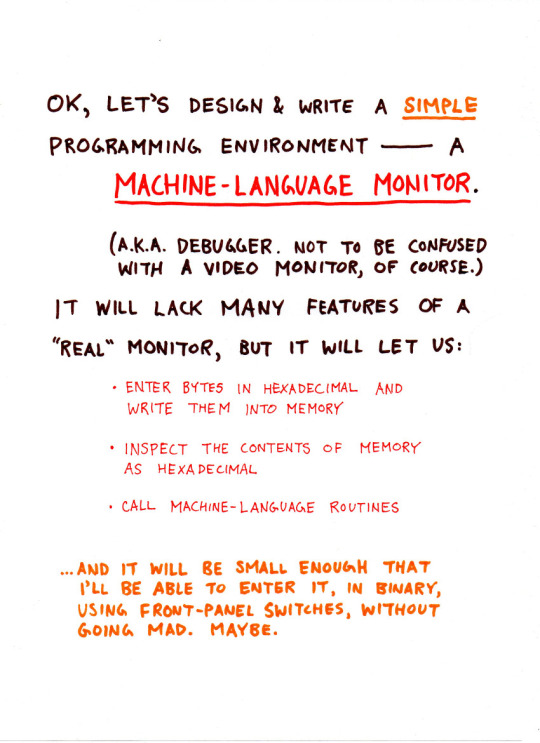 OK, LET'S DESIGN & WRITE A SIMPLE
PROGRAMMING ENVIRONMENT — A
MACHINE-LANGUAGE MONITOR.
(A.K.A. DEBUGGER. NOT TO BE CONFUSED
WITH A VIDEO MONITOR, OF COURSE.)
IT WILL LACK MANY FEATURES OF A
"REAL" MONITOR, BUT IT WILL LET US:
• ENTER BYTES IN HEXADECIMAL AND
WRITE THEM INTO MEMORY
• INSPECT THE CONTENTS OF MEMORY
AS HEXADECIMAL
• CALL MACHINE-LANGUAGE ROUTINES
...AND IT WILL BE SMALL ENOUGH THAT
I'LL BE ABLE TO ENTER IT, IN BINARY,
USING FRONT-PANEL SWITCHES, WITHOUT
GOING MAD. MAYBE.